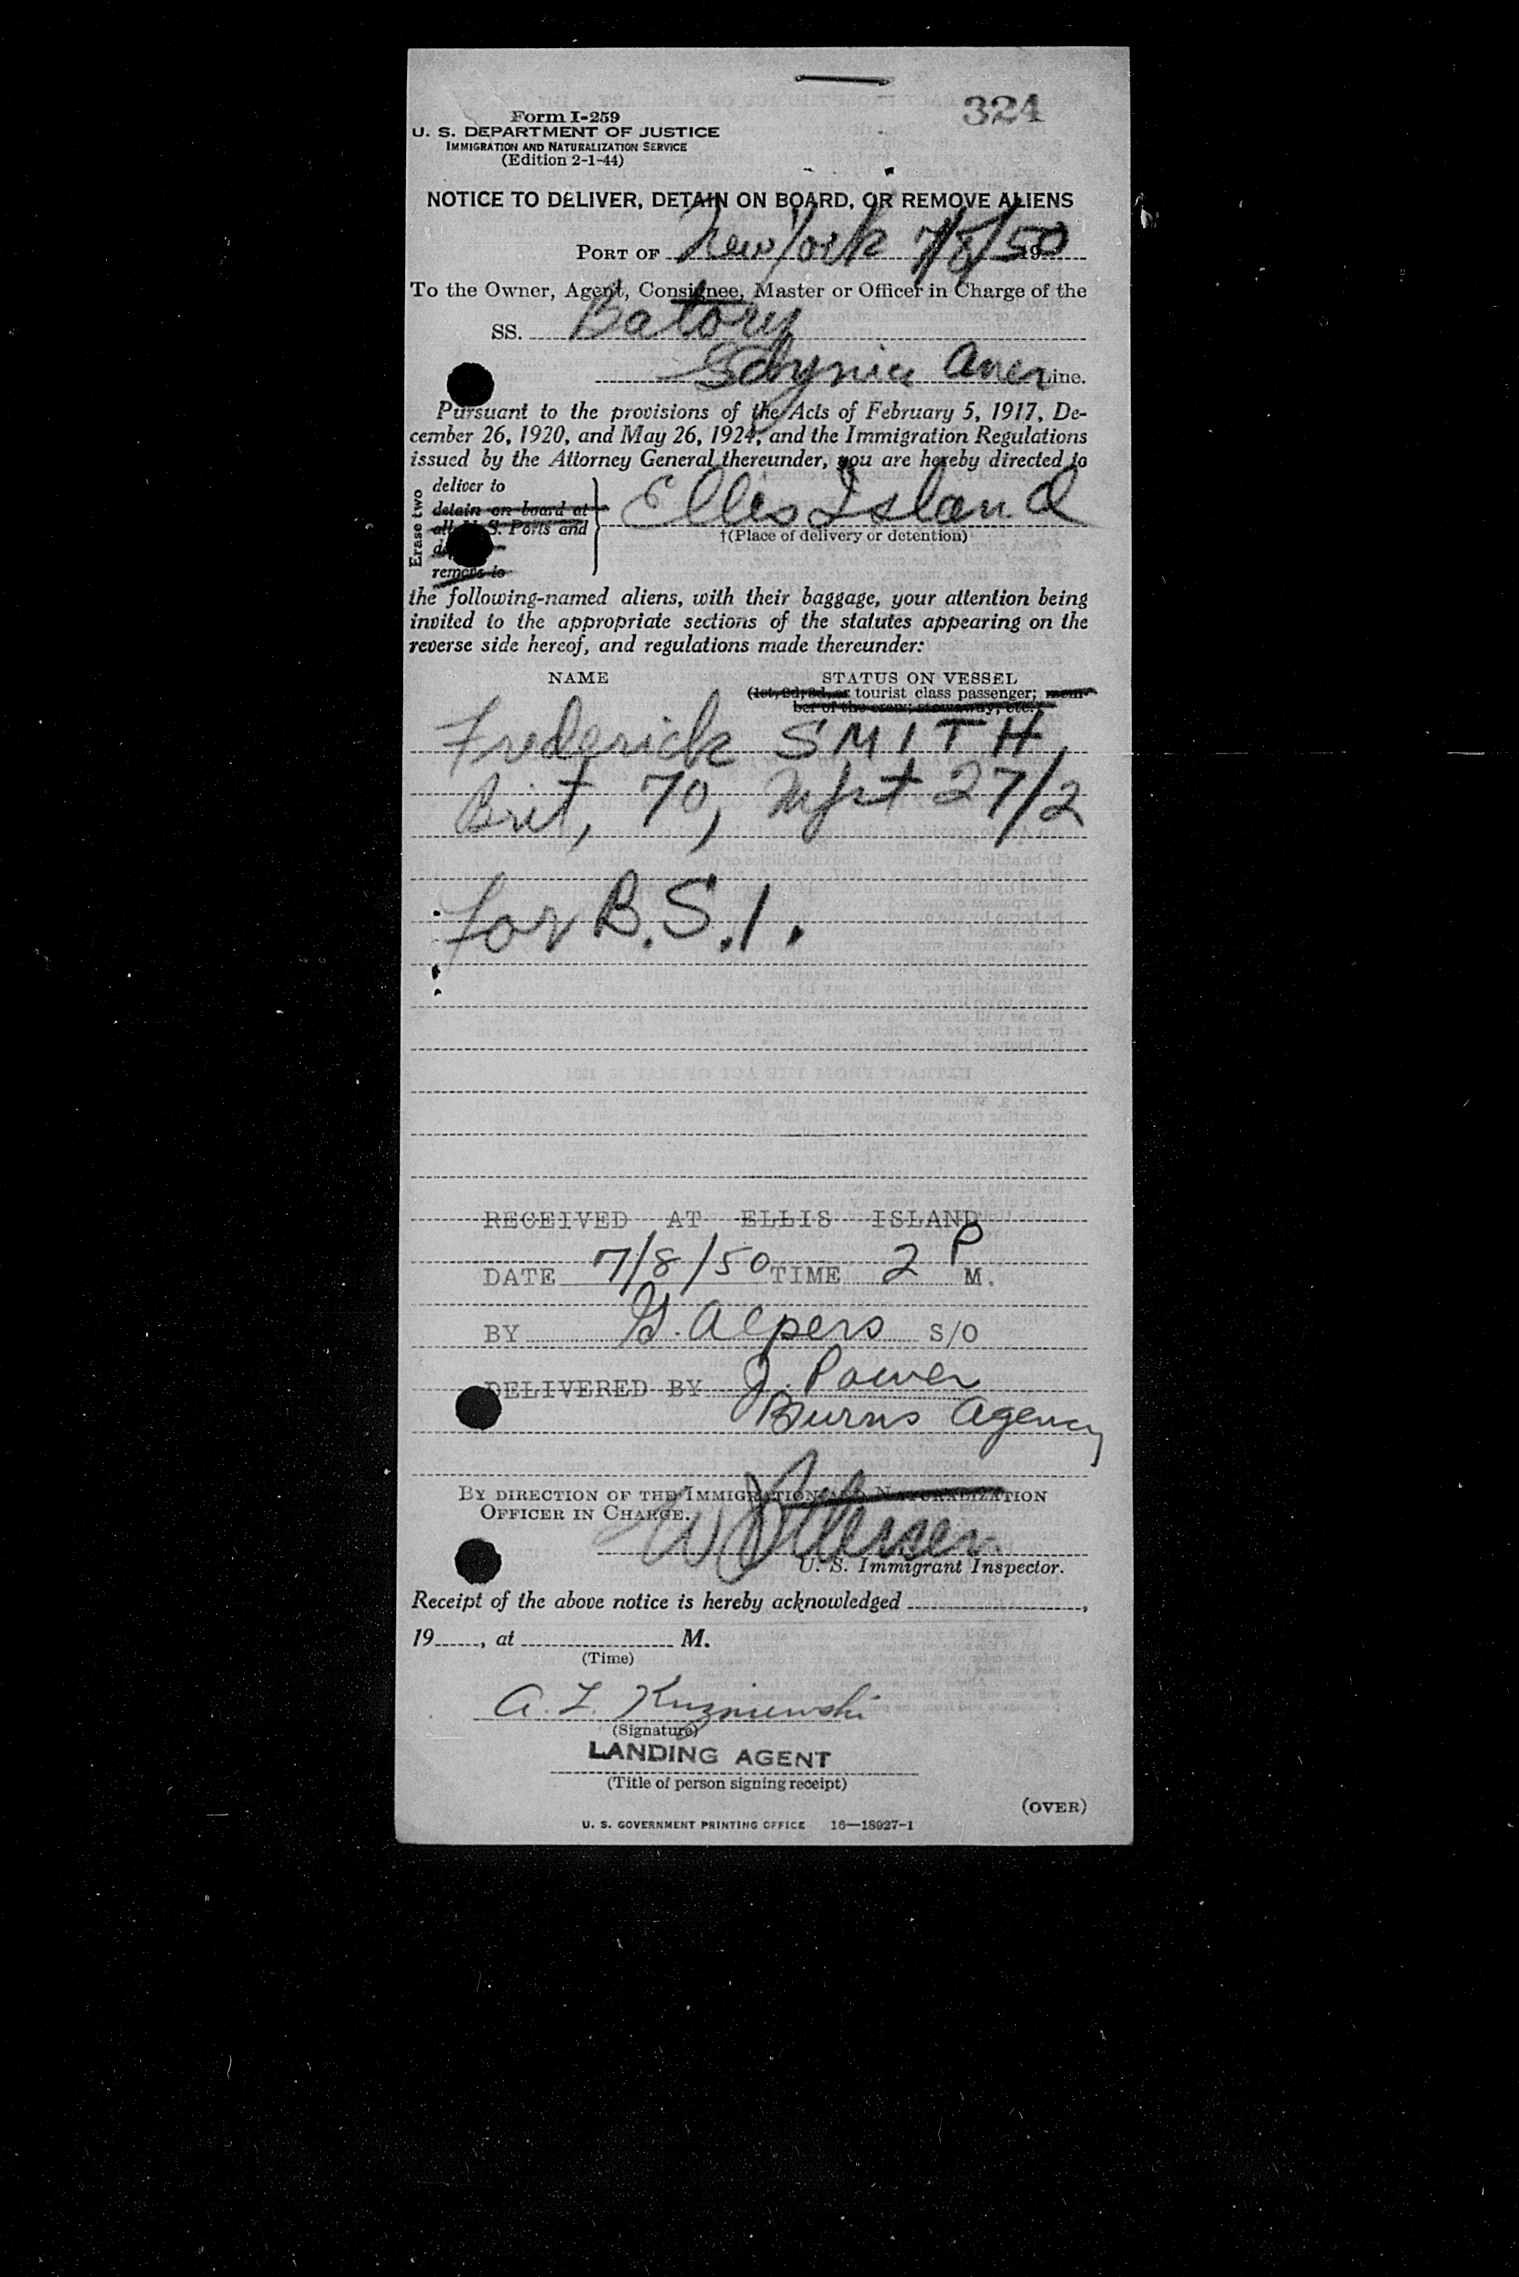 324
Form I-259
U. S. DEPARTMENT OF JUSTICE
IMMIGRATION AND NATURALIZATION SERVICE
(Edition 2-1-44)
NOTICE TO DELIVER, DETAIN ON BOARD, OR REMOVE ALIENS
PORT OF New York 7/8/50 19
To the Owner, Agent, Consignee, Master or Officer in Charge of the
SS. Batory
Gdynia Amer Line.
Pursuant to the provisions of the Acts of February 5, 1917, De-
cember 26, 1920, and May 26, 1924, and the Immigration Regulations
issued by the Attorney General thereunder, you are hereby directed to
Erase two
deliver to
detain on board at
all U. S. Ports and
remove to
Ellis Island
†(Place of delivery or detention)
the following-named aliens, with their baggage, your attention being
invited to the appropriate sections of the statutes appearing on the
reverse side hereof, and regulations made thereunder:
NAME STATUS ON VESSEL
(1st, 2d, 3d, or tourist class passenger; mem-
ber of the crew; stowaway; etc.)
Frederick SMITH
Brit, 70, Mfst 27/2
for B.S.I.
RECEIVED AT ELLIS ISLAND
DATE 7/8/50 TIME 2 P M.
BY G. Alpers S/O
DELIVERED BY J. Power
Burns Agency
BY DIRECTION OF THE IMMIGRATION AND NATURALIZATION
OFFICER IN CHARGE.
U. S. Immigrant Inspector.
Receipt of the above notice is hereby acknowledged ,
19 , at M.
(Time)
A. L. Kuzniewski
(Signature)
LANDING AGENT
(Title of person signing receipt)
(OVER)
U. S. GOVERNMENT PRINTING OFFICE 16—18927-1